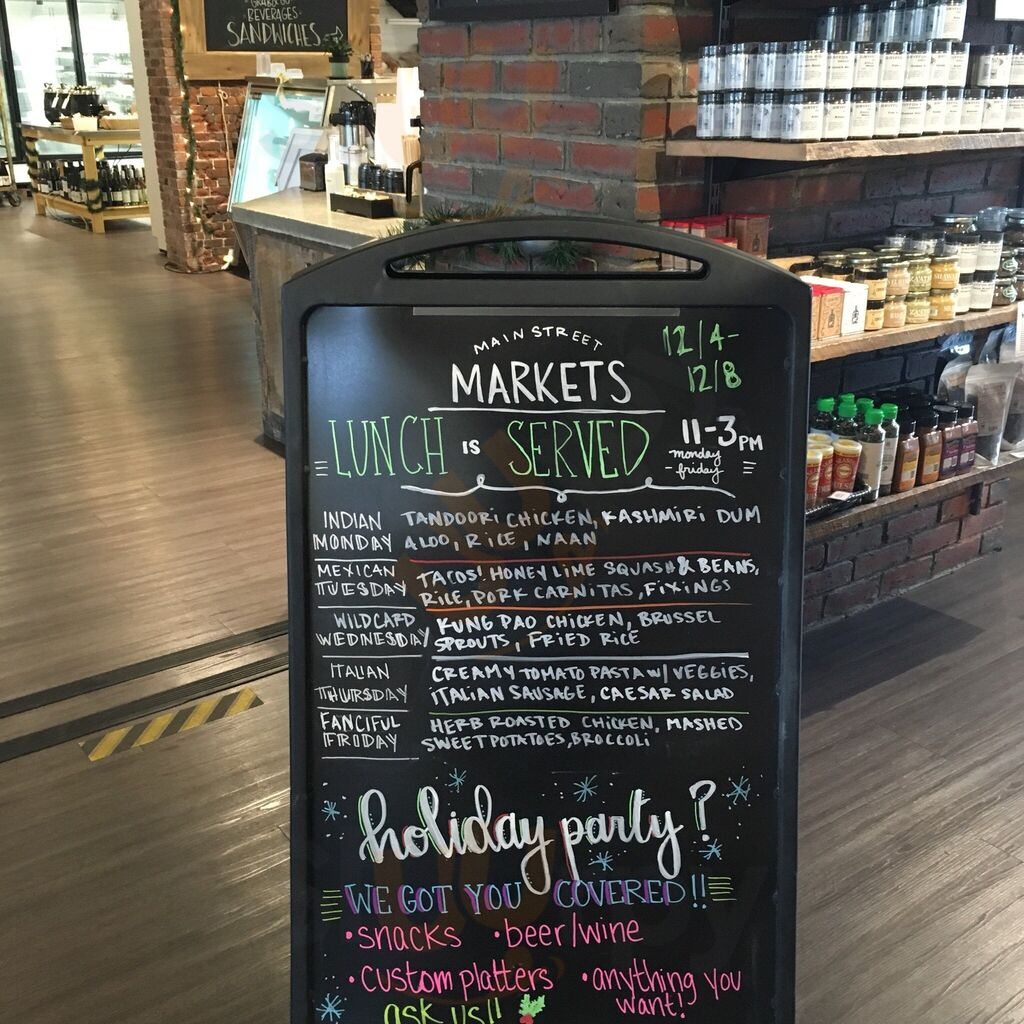 BEVERAGES
SANDWICHES
MAIN STREET
MARKETS
12/4-
12/8
LUNCH IS SERVED
11-3 PM
monday
-friday
INDIAN MONDAY
TANDOORI CHICKEN, KASHMIRI DUM
ALOO, RICE, NAAN
MEXICAN TUESDAY
TACOS! HONEY LIME SQUASH & BEANS,
RICE, PORK CARNITAS, FIXINGS
WILDCARD WEDNESDAY
KUNG PAO CHICKEN, BRUSSEL
SPROUTS, FRIED RICE
ITALIAN THURSDAY
CREAMY TOMATO PASTA W/ VEGGIES,
ITALIAN SAUSAGE, CAESAR SALAD
FANCIFUL FRIDAY
HERB ROASTED CHICKEN, MASHED
SWEET POTATOES, BROCCOLI
holiday party?
WE GOT YOU COVERED!!
• snacks • beer/wine
• custom platters • anything you
want!
ask us!!